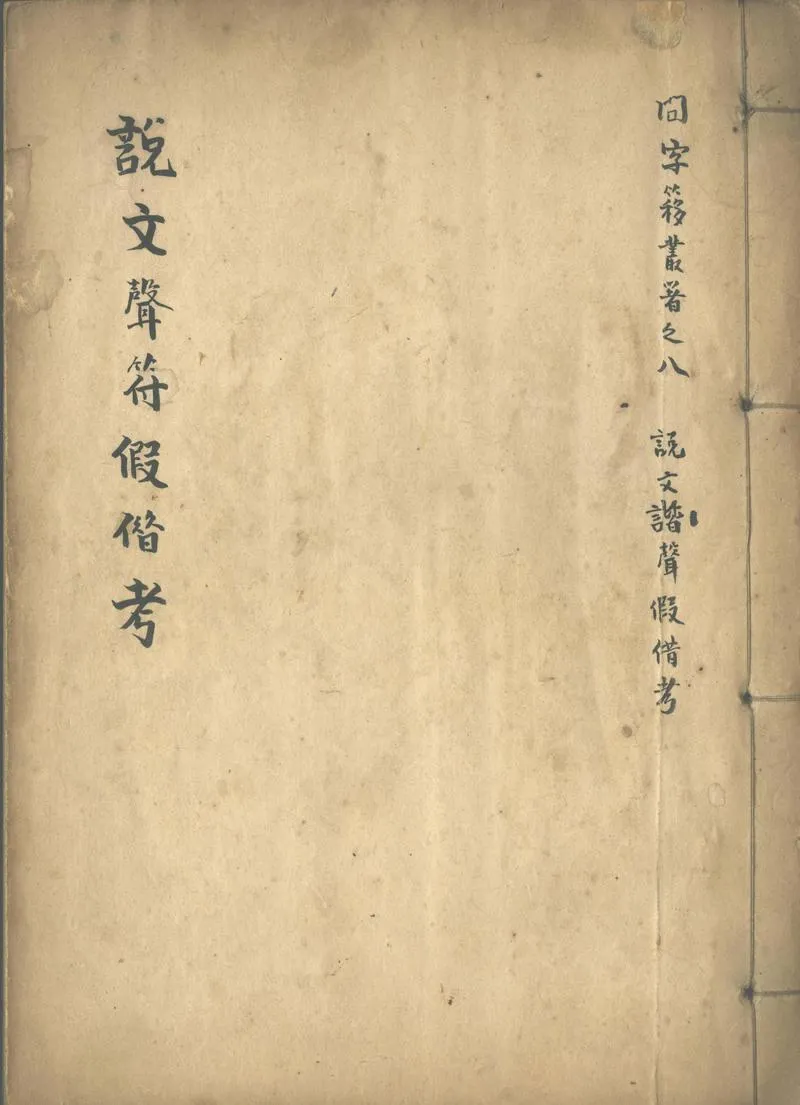 問字簃叢署之八　說文諧聲假借考
說文聲符假借考